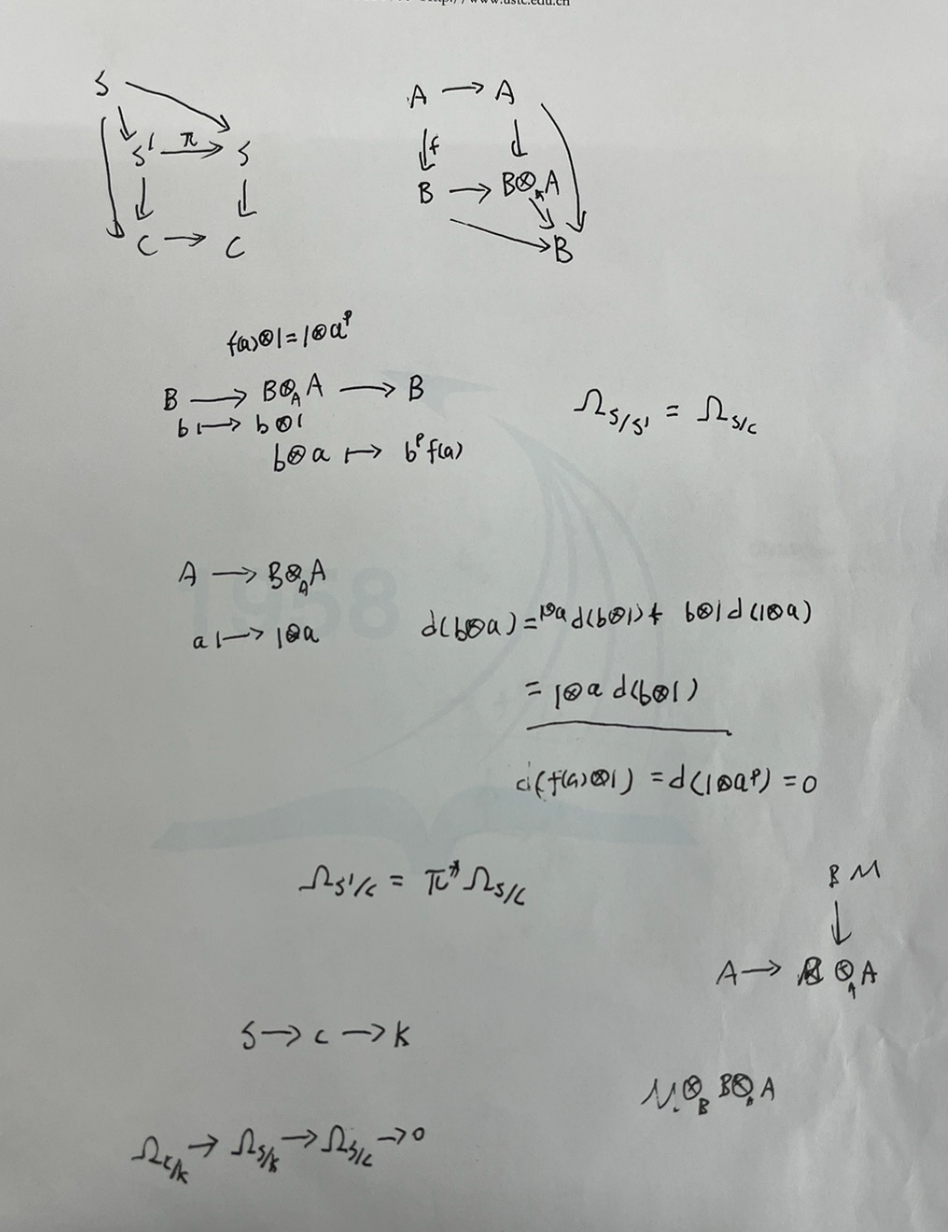 www.ustc.edu.cn
S
S' π→ S
C → C
A → A
↓f ↓
B → B⊗_A A
B
f(a)⊗1=1⊗a^p
B → B⊗_A A → B
b ↦ b⊗1
b⊗a ↦ b^p f(a)
Ω_{S/S'} = Ω_{S/C}
A → B⊗_A A
a ↦ 1⊗a
1958
d(b⊗a) = 1⊗a d(b⊗1) + b⊗1 d(1⊗a)
= 1⊗a d(b⊗1)
d(f(a)⊗1) = d(1⊗a^p) = 0
Ω_{S'/C} = π* Ω_{S/C}
B M
↓
A → B ⊗_A A
S → C → K
M ⊗_B B⊗_A A
Ω_{C/K} → Ω_{S/K} → Ω_{S/C} → 0